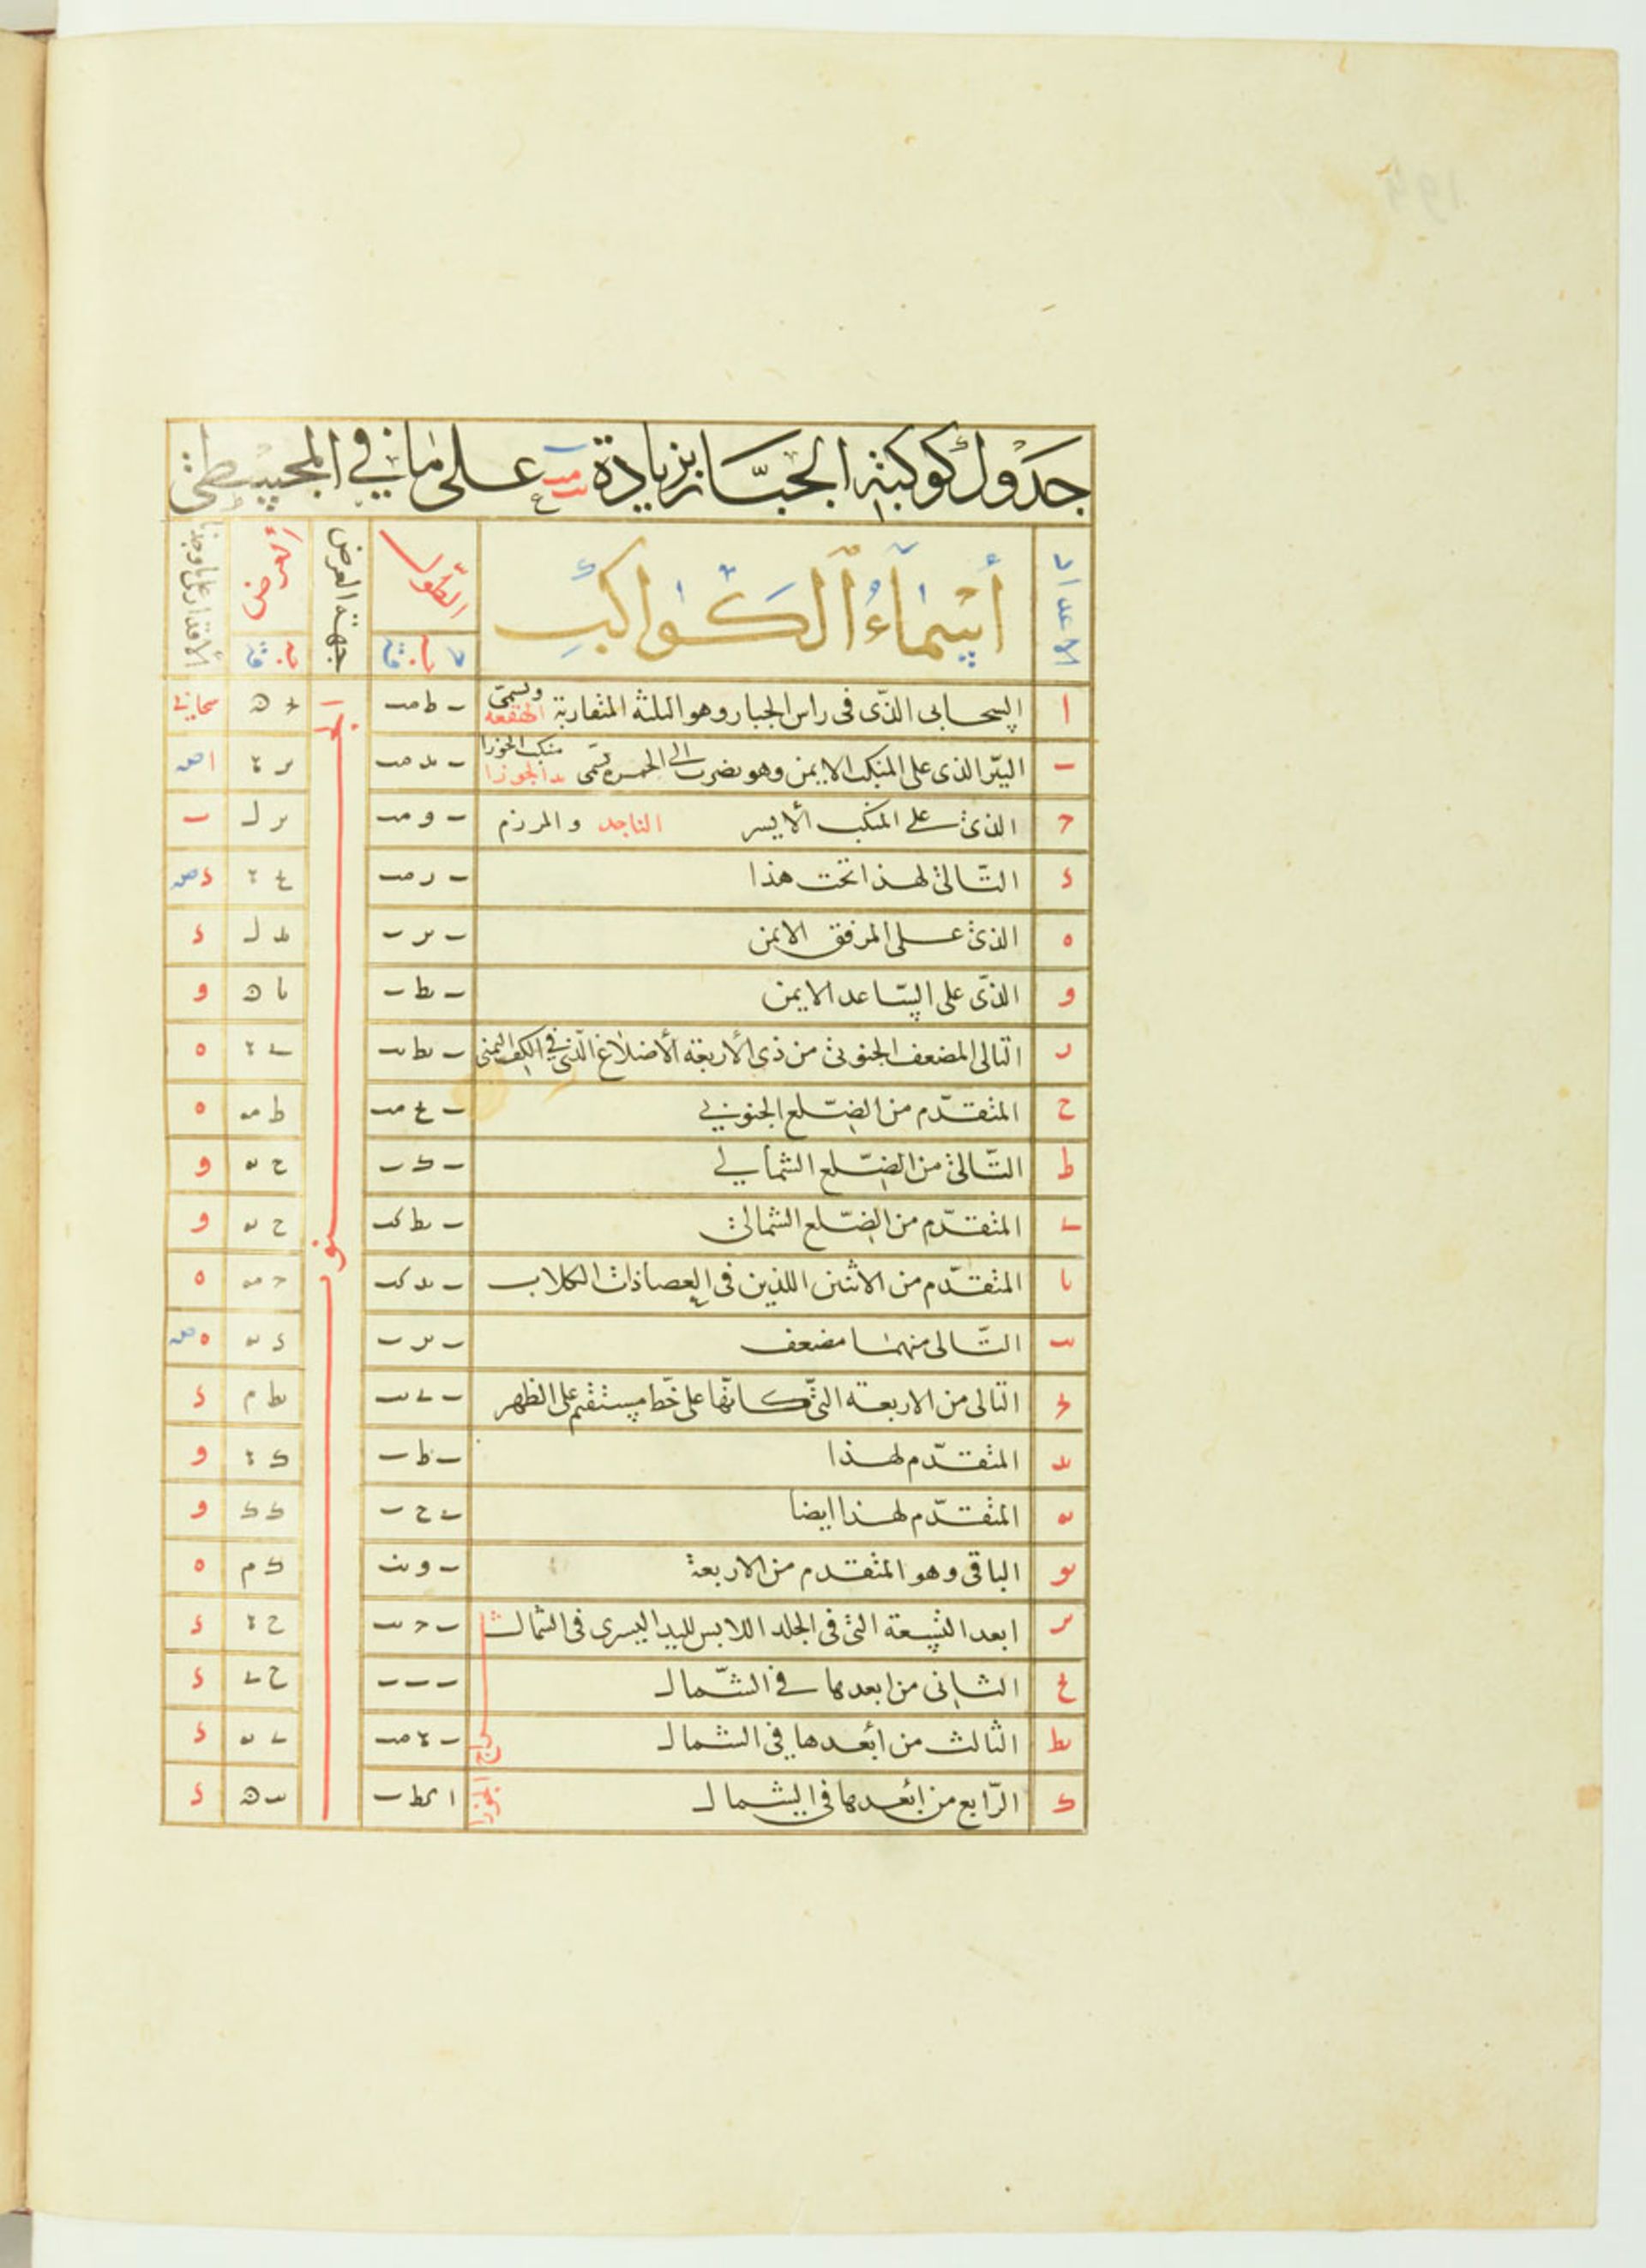 جدول كوكبة الجبار بزيادة يب مب على ما في المجسطي
الاعداد
أسماء الكواكب
الطول
جهة العرض
العرض
الأقدار على ما وجدنا
ا السحابى الذى فى راس الجبار وهو الثلثة المتقاربة وتسمى الهقعه ب ط مب يج ه سحابي
ب النير الذى على المنكب الايمن وهو يضرب الى الحمره تسمى منكب الجوزا يد الجوزا ب يد مب يز ٠ ا ص
ج الذى على المنكب الأيسر الناجد و المرزم ب و مب يز ل ب
د التالى لهذا تحت هذا ب ز مب يح ٠ د ص
ه الذى على المرفق الايمن ب يز ب يد ل د
و الذى على الساعد الايمن ب يط ب يا ه و
ز التالى المضعف الجنوبى من ذى الأربعة الأضلاع التى في الكف اليمنى ب يط نب ي ٠ ه
ح المتقدم من الضلع الجنوبي ب يح مب ط مه ه
ط التالى من الضلع الشمالي ب ك ب ح يه و
ى المتقدم من الضلع الشمالى ب يط كب ح يه و
يا المتقدم من الاثنين اللذين فى العصا ذات الكلاب ب يد كب ج مه ه
يب التالى منهما مضعف ب يز ب د يه ه ص
يج التالى من الاربعة التى كانها على خط مستقيم على الظهر ب ى نب يط م د
يد المتقدم لهذا ب ط ب ك ٠ و
يه المتقدم لهذا ايضا ب ح ب ك ك و
يو الباقى وهو المتقدم من الاربعة ب و نب ك م ه
يز ابعد التسعة التى فى الجلد اللابس لليد اليسرى فى الشمال ب ج نب ح ٠ د
يح الثانى من ابعدها في الشمال ب ب ب ح ى د
يط الثالث من أبعدها في الشمال ب ٠ مب ى يه د
ك الرابع من أبعدها في الشمال ا كط ب يب ه د
الجنوب
تاج الجوزا